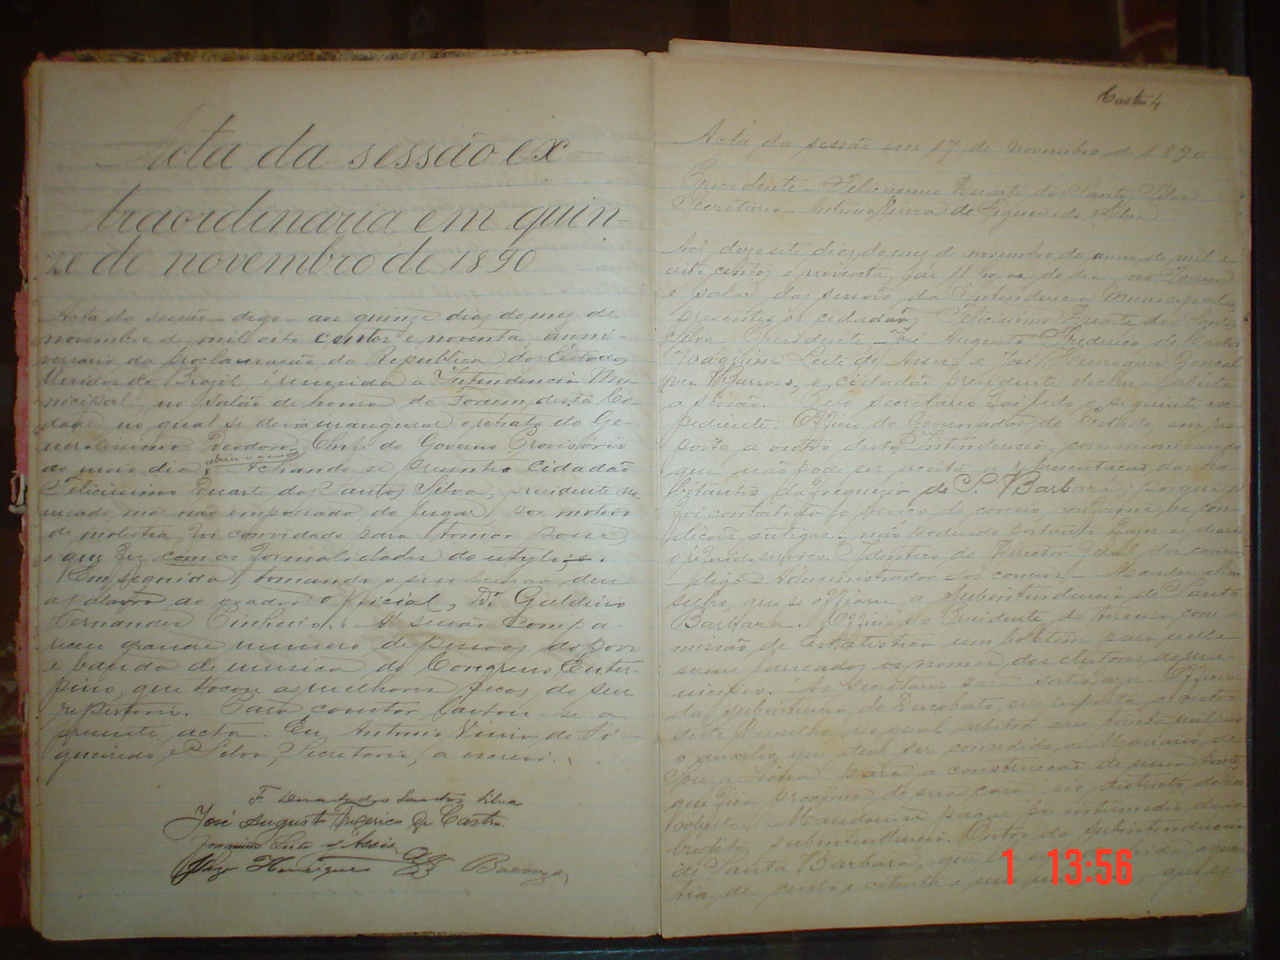 Acta da sessão ex-
traordinaria em quin-
ze de novembro de 1890
Acta da sessão digo aos quinze dias do mez de
novembro de mil oito centos e noventa, anni-
versario da proclamação da Republica dos Estados
Unidos do Brazil, é reunida a Intendencia Mu-
nicipal, no salão de honra do Forum desta Ci-
dade, no qual se devia inaugurar o retrato do Ge-
neralissimo Deodoro, Chefe do Governo Provisorio
ao meio dia, abriu-se a sessão Achando-se presente o Cidadão
Felicissimo Duarte dos Santos Silva, presidente no-
meado mas não empossado do lugar, por motivo
de molestia, foi convidado para tomar posse
o que fez com as formalidades do estylo.
Em seguida, tomando o seu lugar deu
a palavra ao orador official, Dr. Galdino
Fernandes Pinheiro. A sessão compa-
receu grande numero de pessoas do povo
e banda de musica do Congresso Euter-
pino, que tocou as melhores peças do seu
repertorio. Para constar lavrou-se a
presente acta. Eu Antonio Vieira de Fi-
gueiredo e Silva, Secretario, a escrevi.
F Duarte dos Santos Silva
José Augusto Frederico de Castro
Joaquim Leite d'Assis
José Henriques Barroso
Castro 4
Acta da sessão em 17 de novembro de 1890
Presidente - Felicissimo Duarte dos Santos Silva
Secretario - Antonio Vieira de Figueiredo e Silva
Aos dezesete dias do mez de novembro do anno de mil e
oito centos e noventa, ás 11 horas do dia no Forum
e sala das sessões da Intendencia Municipal,
presentes os cidadãos Felicissimo Duarte dos Santos
Silva, Presidente - José Augusto Frederico de Castro
Joaquim Leite de Assis e José Henriques Goncal-
ves Barroso, o cidadão Presidente declarou aberta
a sessão. Pelo secretario foi lido o seguinte ex-
pediente: Officio do Governador do Estado em res-
posta a outro desta Intendencia, communicando
que não pode ser acceita a representação dos ha-
bitantes da freguezia de S. Barbara porque
foi contratado o serviço do correio conforme as con-
dições antigas, não podendo portanto
o referido serviço. Identico do Director Geral, dos correios
digo Administrador dos correios - Mandou o Con-
selho, que se officiasse a Subintendencia de Santa
Barbara. Officio do Presidente da terceira com-
missão de Estatistica um boletim para nelle
serem lançados os nomes dos eleitores do mu-
nicipio. Ao Secretario para satisfazer. Officio
da Subintendencia do Descoberto, em resposta a outro
deste Conselho, no qual arbitra em trinta mil reis
o auxilio que deve ser concedido a Marianno de
Souza Lima para a construcção de uma ponte
que fica proxima de sua casa no districto do Des-
coberto. Mandou-se pagar por intermedio da so-
bredita subintendencia. Outro da subintendencia
de Santa Barbara, a quan-
tia de cento e setenta e um mil, que se
1 13:56